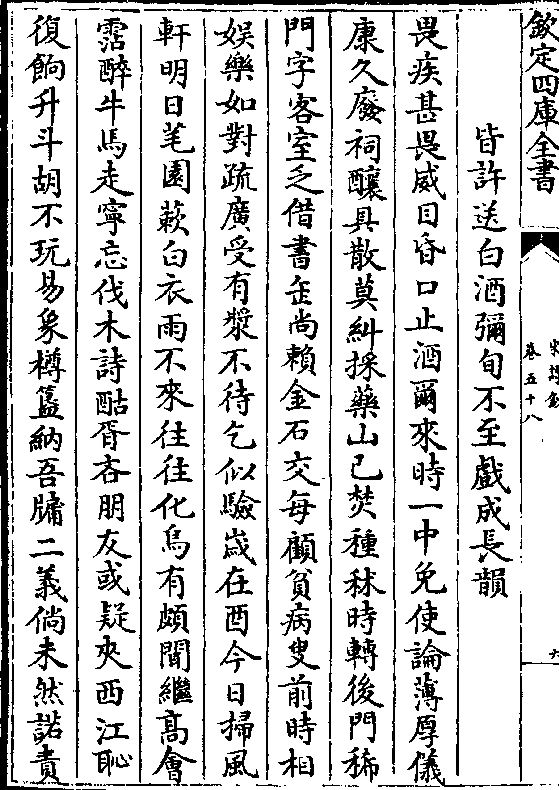 欽定四庫全書
卷五十八
六
皆許送白酒彌旬不至戲成長韻
畏疾甚畏威目昏口止酒爾來時一中免使論薄厚儀
康久廢祠釀具散莫糾採藥山已焚種秫時轉後門稀
門字客室乏借書缶尚賴金石交每顧貧病叟前時相
娱樂如對疏廣受有漿不待乞似驗嵗在酉今日掃風
軒明日芼園蔌白衣雨不來往往化烏有頗聞繼髙會
霑醉牛馬走寧忘伐木詩酤胥吝朋友或疑夾西江恥
復餉升斗胡不玩易象樽簋納吾牖二義倘未然諾責